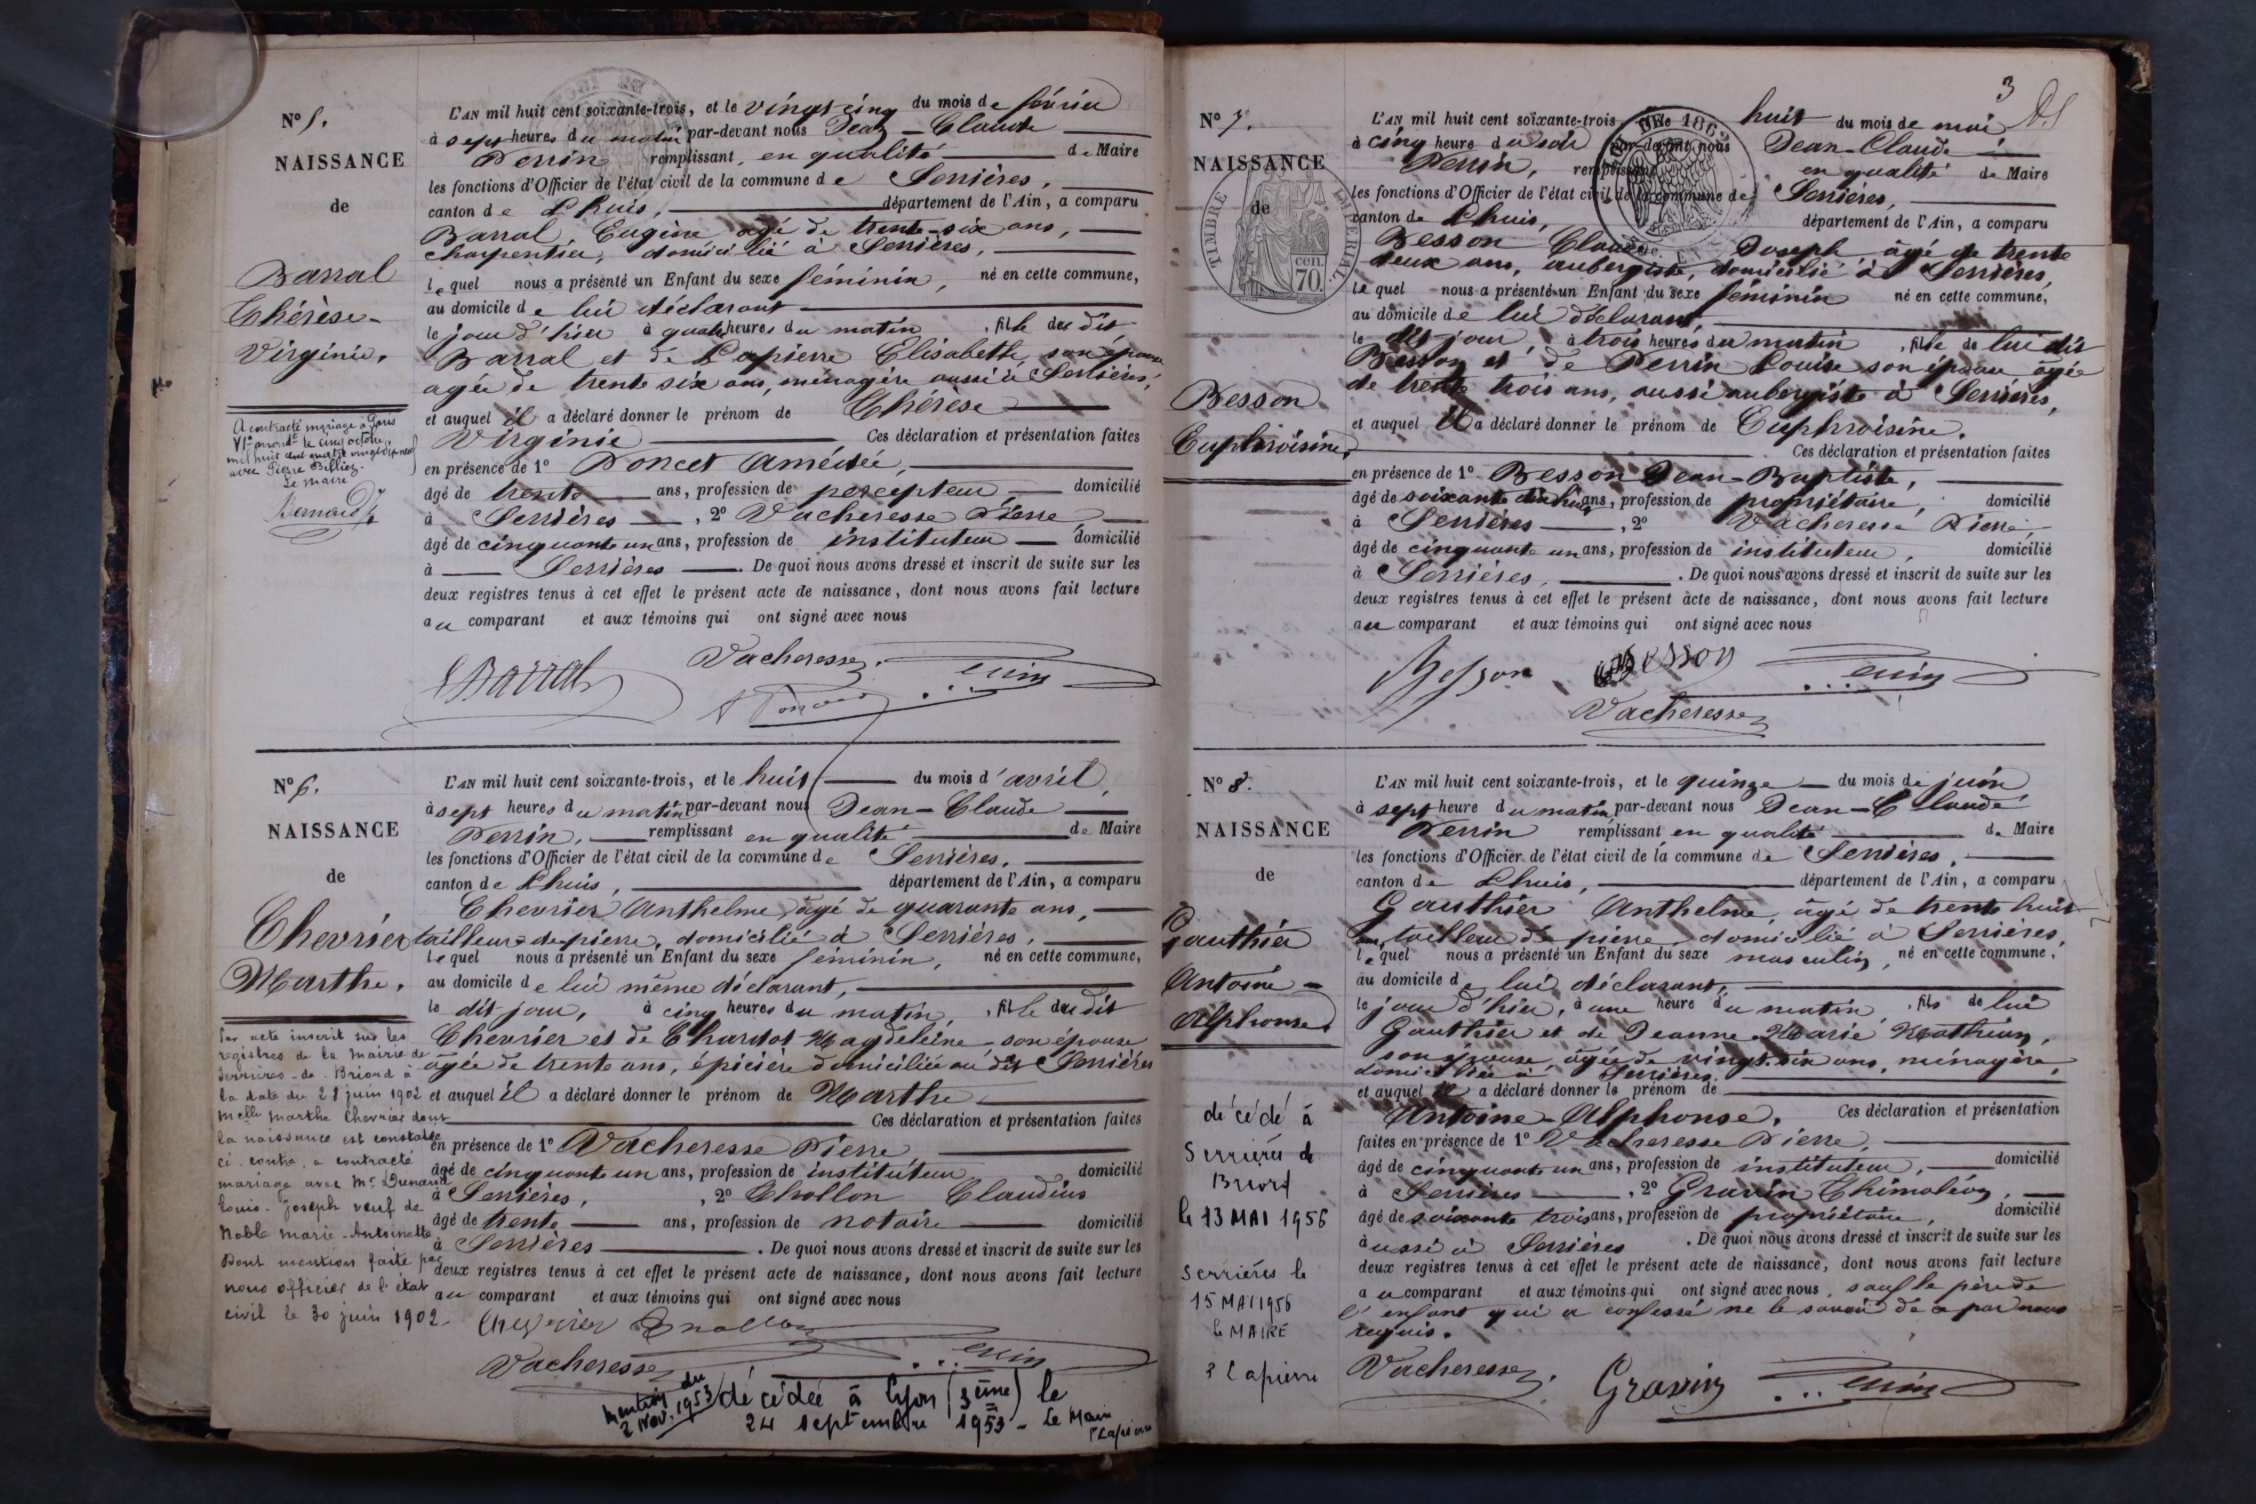 N° 5.
NAISSANCE
de
Barral
Thérèse-
Virginie.
A contracté mariage à Paris
VIe arrondt le cinq octobre
mil huit cent quatre vingt
avec Pierre Billiez.
Le Maire
Bernard
L'AN mil huit cent soixante-trois, et le vingt cinq du mois de février
à sept heures du matin par-devant nous Jean-Claude
Perrin remplissant en qualité de Maire
les fonctions d'Officier de l'état civil de la commune de Serrières,
canton de Lhuis, département de l'Ain, a comparu
Barral Eugène agé de trente-six ans,
charpentier, domicilié à Serrières,
lequel nous a présenté un Enfant du sexe féminin, né en cette commune,
au domicile de lui déclarant
le jour d'hier à quatre heures du matin, fille du dit
Barral et de Lapierre Elisabeth, son épouse
agée de trente six ans, ménagère aussi à Serrières,
et auquel il a déclaré donner le prénom de Thérèse
Virginie Ces déclaration et présentation faites
en présence de 1° Poncet Amédée,
âgé de trente ans, profession de percepteur, domicilié
à Serrières, 2° Vacheresse Pierre,
âgé de cinquante un ans, profession de instituteur domicilié
à Serrières. De quoi nous avons dressé et inscrit de suite sur les
deux registres tenus à cet effet le présent acte de naissance, dont nous avons fait lecture
au comparant et aux témoins qui ont signé avec nous
E Barral Vacheresse Perrin
A Poncet
N° 6.
NAISSANCE
de
Chevrier
Marthe.
Par acte inscrit sur les
registres de la mairie de
Serrières-de-Briord à
la date du 28 juin 1902
Melle Marthe Chevrier dont
la naissance est constatée
ci-contre, a contracté
mariage avec Mr Dunand
Louis-Joseph veuf de
Noble Marie-Antoinette
Dont mention faite par
nous officier de l'état
civil le 30 juin 1902.
L'AN mil huit cent soixante-trois, et le huit du mois d'avril,
à sept heures du matin par-devant nous Jean-Claude
Perrin, remplissant en qualité de Maire
les fonctions d'Officier de l'état civil de la commune de Serrières,
canton de Lhuis, département de l'Ain, a comparu
Chevrier Anthelme, âgé de quarante ans,
tailleur-de-pierre, domicilié à Serrières,
lequel nous a présenté un Enfant du sexe féminin, né en cette commune,
au domicile de lui même déclarant,
le dit jour, à cinq heures du matin, fille du dit
Chevrier et de Chardot Magdeleine son épouse
âgée de trente ans, épicière domiciliée au dit Serrières
et auquel il a déclaré donner le prénom de Marthe
Ces déclaration et présentation faites
en présence de 1° Vacheresse Pierre
âgé de cinquante un ans, profession de instituteur domicilié
à Serrières, 2° Chollon Claudius
âgé de trente ans, profession de notaire domicilié
à Serrières. De quoi nous avons dressé et inscrit de suite sur les
deux registres tenus à cet effet le présent acte de naissance, dont nous avons fait lecture
au comparant et aux témoins qui ont signé avec nous
Chevrier Chollon
Vacheresse Perrin
Mention du
2 Nov. 1953
décédée à Lyon (3ème) le
24 septembre 1953 - Le Maire
P Lapierre
3
N° 7.
NAISSANCE
de
TIMBRE IMPERIAL
70 cen
Besson
Euphroisine.
L'AN mil huit cent soixante-trois huit du mois de mai
à cinq heure du soir par-devant nous Jean-Claude
Perrin, remplissant en qualité de Maire
les fonctions d'Officier de l'état civil de la commune de Serrières,
canton de Lhuis, département de l'Ain, a comparu
Besson Claude Joseph, âgé de trente
deux ans, aubergiste, domicilié à Serrières,
lequel nous a présenté un Enfant du sexe féminin né en cette commune,
au domicile de lui déclarant,
le dit jour, à trois heures du matin, fille de lui dit
Besson et de Perrin Louise son épouse agée
de trente trois ans, aussi aubergiste à Serrières,
et auquel il a déclaré donner le prénom de Euphroisine.
Ces déclaration et présentation faites
en présence de 1° Besson Jean-Baptiste,
âgé de soixante dix huit ans, profession de propriétaire, domicilié
à Serrières, 2° Vacheresse Pierre,
âgé de cinquante un ans, profession de instituteur, domicilié
à Serrières. De quoi nous avons dressé et inscrit de suite sur les
deux registres tenus à cet effet le présent acte de naissance, dont nous avons fait lecture
au comparant et aux témoins qui ont signé avec nous
Besson Besson Perrin
Vacheresse
N° 8.
NAISSANCE
de
Gauthier
Antoine-
Alphonse.
décédé à
Serrières de
Briord
le 13 MAI 1956
Serrières le
15 MAI 1956
le MAIRE
P Lapierre
L'AN mil huit cent soixante-trois, et le quinze du mois de juin
à sept heure du matin par-devant nous Jean-Claude
Perrin remplissant en qualité de Maire
les fonctions d'Officier de l'état civil de la commune de Serrières,
canton de Lhuis, département de l'Ain, a comparu
Gauthier Anthelme, âgé de trente huit
ans, tailleur de pierre, domicilié à Serrières,
lequel nous a présenté un Enfant du sexe masculin, né en cette commune,
au domicile de lui déclarant,
le jour d'hier, à une heure du matin, fils de lui
Gauthier et de Jeanne Marie Mathieu,
son épouse, âgée de vingt-six ans, ménagère,
domiciliée à Serrières,
et auquel il a déclaré donner le prénom de
Antoine-Alphonse. Ces déclaration et présentation
faites en présence de 1° Vacheresse Pierre,
âgé de cinquante un ans, profession de instituteur, domicilié
à Serrières, 2° Gravin Thimoléon,
âgé de soixante trois ans, profession de propriétaire, domicilié
aussi à Serrières. De quoi nous avons dressé et inscrit de suite sur les
deux registres tenus à cet effet le présent acte de naissance, dont nous avons fait lecture
au comparant et aux témoins qui ont signé avec nous, sauf le père de
l'enfant qui a confessé ne le savoir de ce par nous
requis.
Vacheresse Gravin Perrin